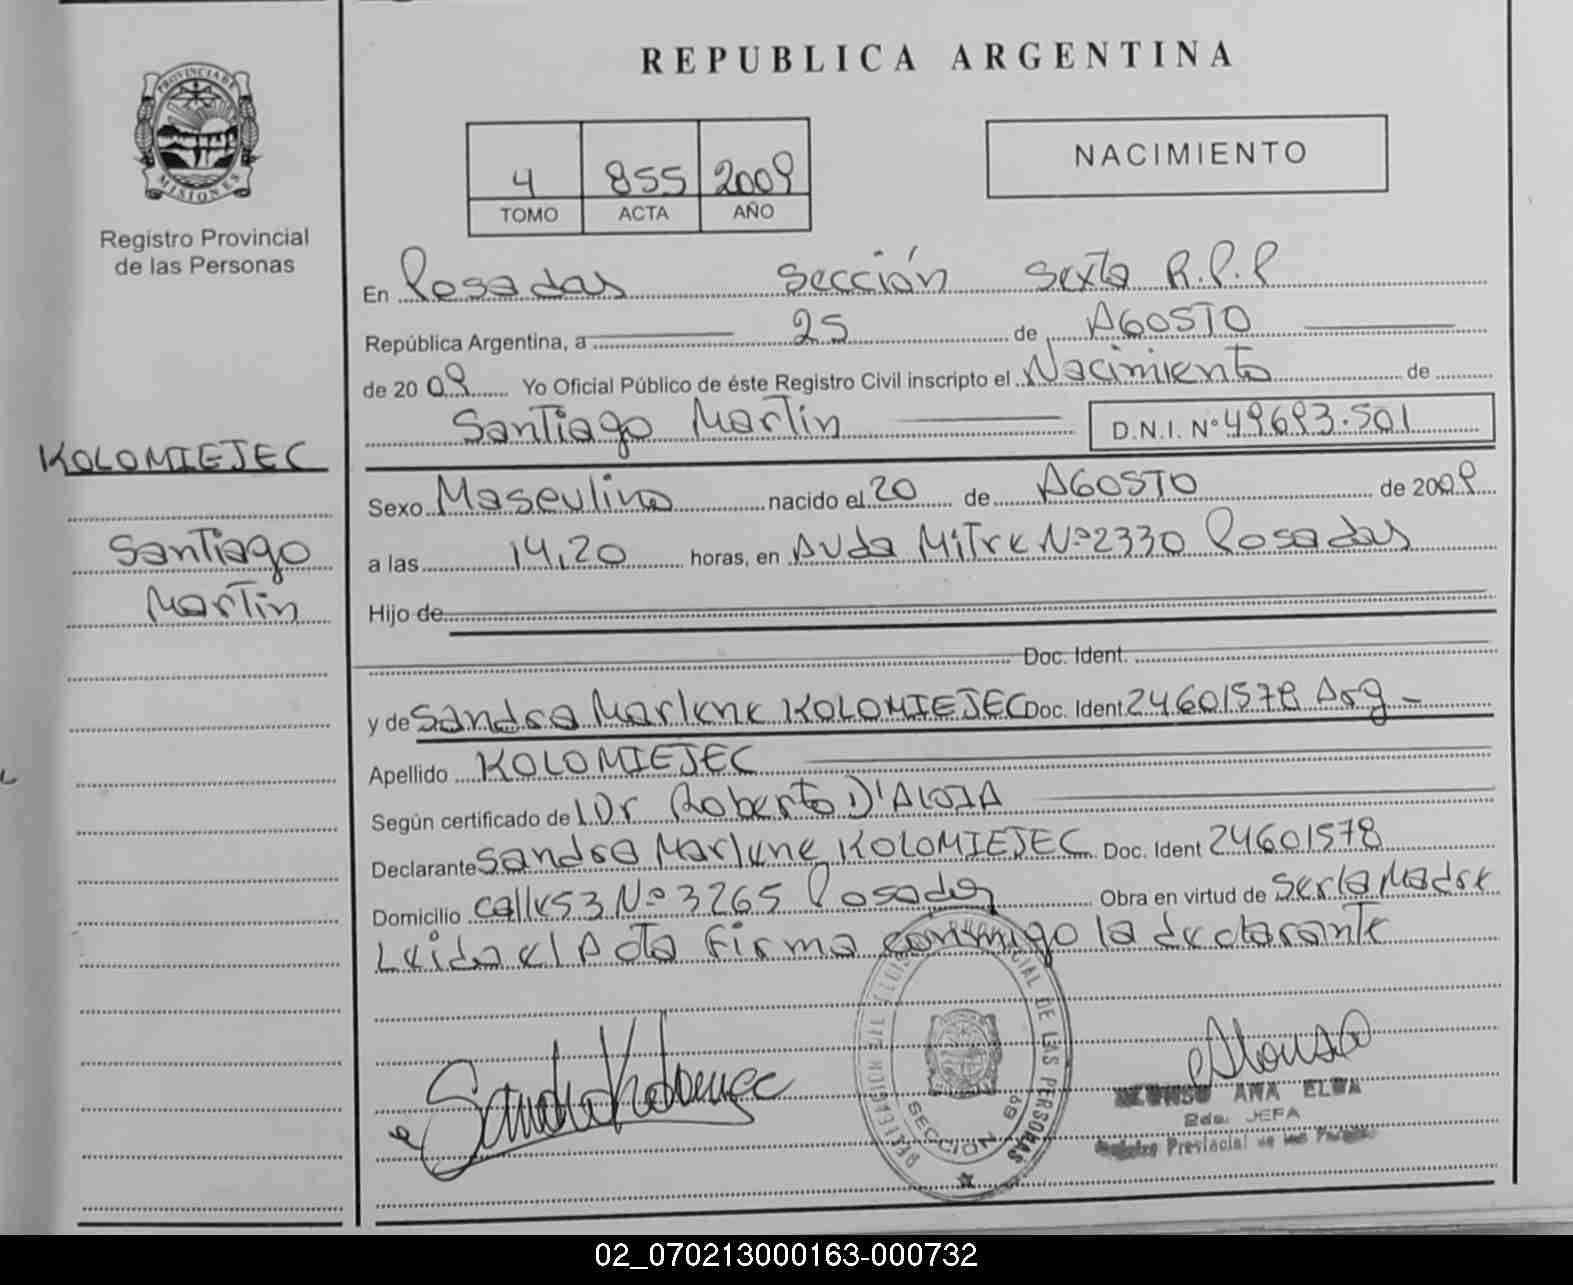 REPUBLICA ARGENTINA
PROVINCIA DE
MISIONES
Registro Provincial
de las Personas
4 855 2009
TOMO ACTA AÑO
NACIMIENTO
En Posadas Sección Sexta R.P.P
República Argentina, a 25 de AGOSTO
de 2009 Yo Oficial Público de éste Registro Civil inscripto el Nacimiento de
Santiago Martin D.N.I. Nº 49693.501
KOLOMIEJEC
Santiago
Martin
Sexo Masculino nacido el 20 de AGOSTO de 2009
a las 14,20 horas, en Avda Mitre Nº 2330 Posadas
Hijo de
Doc. Ident.
y de Sandra Marlene KOLOMIEJEC Doc. Ident 24601578 Arg -
Apellido KOLOMIEJEC
Según certificado de l Dr Roberto D'ALOIA
Declarante Sandra Marlene KOLOMIEJEC Doc. Ident 24601578
Domicilio calle 53 Nº 3265 Posadas Obra en virtud de Ser la Madre
Leida el Acta Firma conmigo la declarante
Sandra Kolomiejec
DE LAS PERSONAS
SECCION 6º
Alonso
ALONSO ANA ELBA
2da. JEFA
Registro Provincial de las Personas
02_070213000163-000732